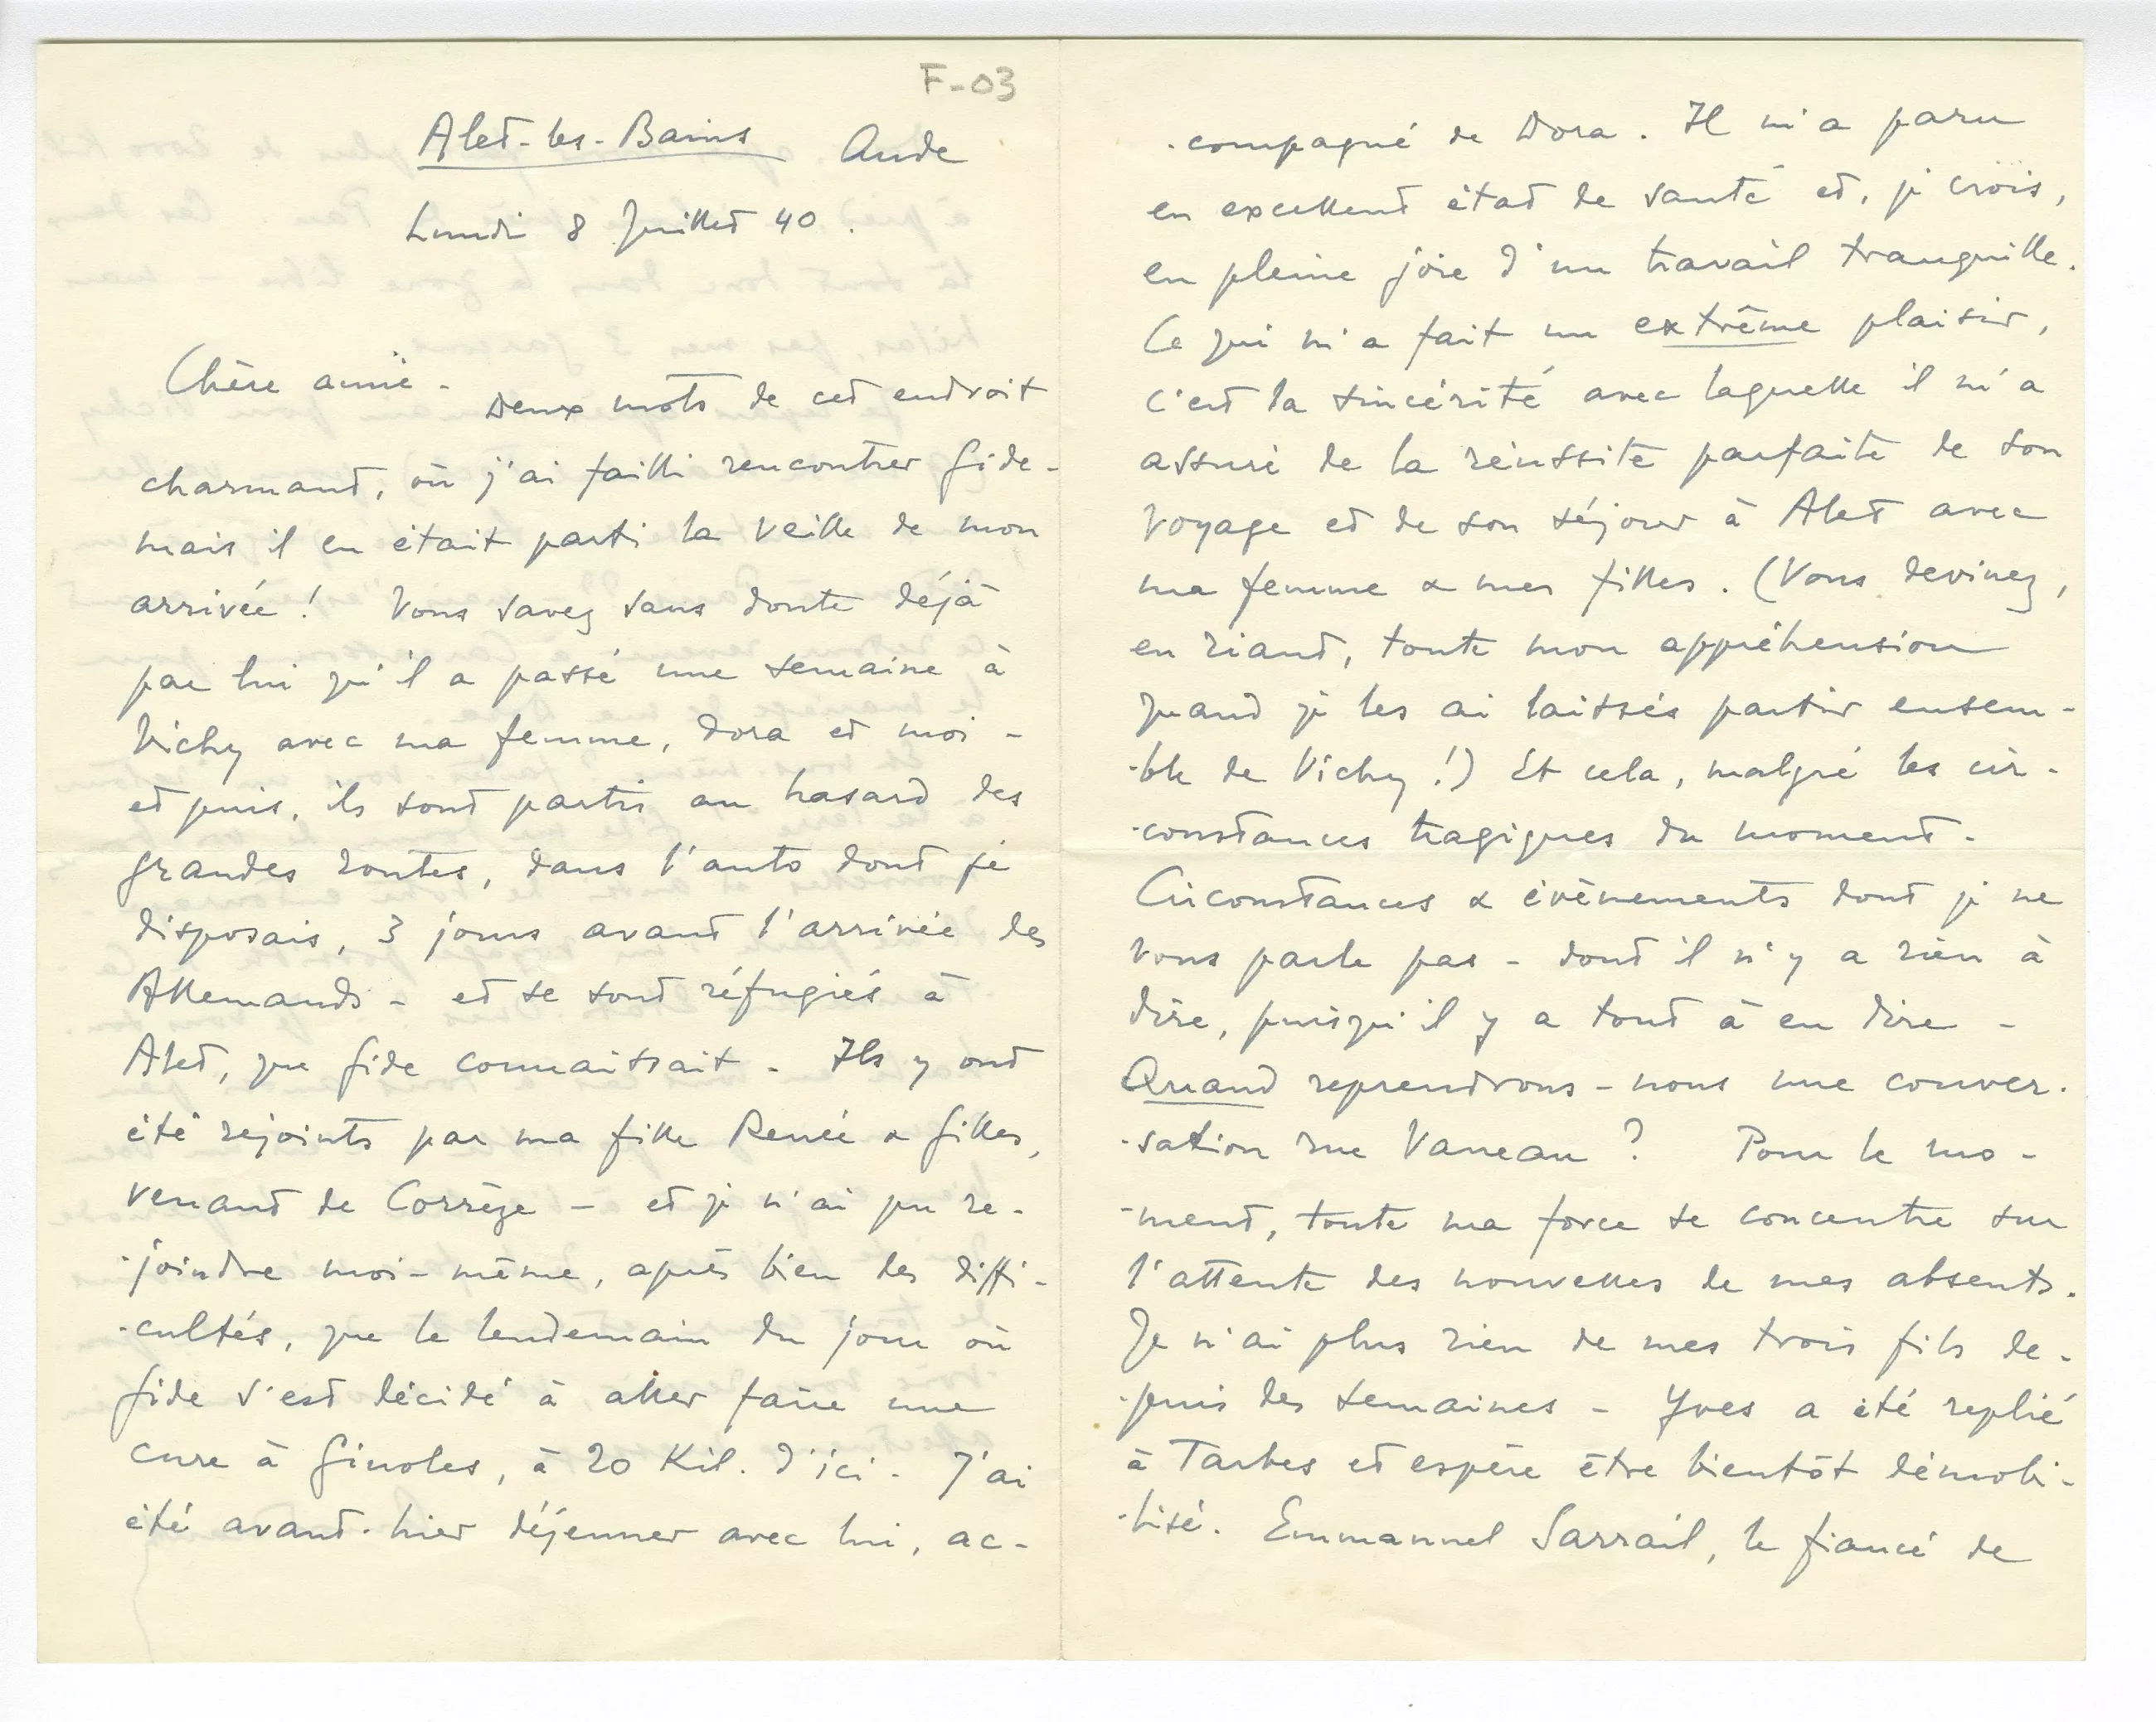 F-03
Alet-les-Bains Aude
Lundi 8 Juillet 40.
Chère amie - Deux mots de cet endroit
charmant, où j'ai failli rencontrer Gide -
mais il en était parti la veille de mon
arrivée ! Vous savez sans doute déjà
par lui qu'il a passé une semaine à
Vichy avec ma femme, Dora et moi -
et puis, ils sont partis au hasard des
grandes routes, dans l'auto dont je
disposais, 3 jours avant l'arrivée des
Allemands - et se sont réfugiés à
Alet, que Gide connaissait - Ils y ont
été rejoints par ma fille Renée & Gilles,
venant de Corrèze - et je n'ai pu re-
-joindre moi-même, après bien des diffi-
-cultés, que le lendemain du jour où
Gide s'est décidé à aller faire une
cure à Ginoles, à 20 Kil. d'ici - J'ai
été avant-hier déjeuner avec lui, ac-
-compagné de Dora. Il m'a paru
en excellent état de santé et, je crois,
en pleine joie d'un travail tranquille.
Ce qui m'a fait un extrême plaisir,
c'est la sincérité avec laquelle il m'a
assuré de la réussite parfaite de son
voyage et de son séjour à Alet avec
ma femme & mes filles. (Vous devinez,
en riant, toute mon appréhension
quand je les ai laissés partir ensem-
-ble de Vichy !) Et cela, malgré les cir-
-constances tragiques du moment -
Circonstances & évènements dont je ne
vous parle pas - dont il n'y a rien à
dire, puisqu'il y a tout à en dire -
Quand reprendrons-nous une conver-
-sation rue Vaneau ? Pour le mo-
-ment, toute ma force se concentre sur
l'attente des nouvelles de mes absents.
Je n'ai plus rien de mes trois fils de-
-puis des semaines - Yves a été replié
à Tarbes et espère être bientôt démobi-
-lisé. Emmanuel Sarrail, le fiancé de